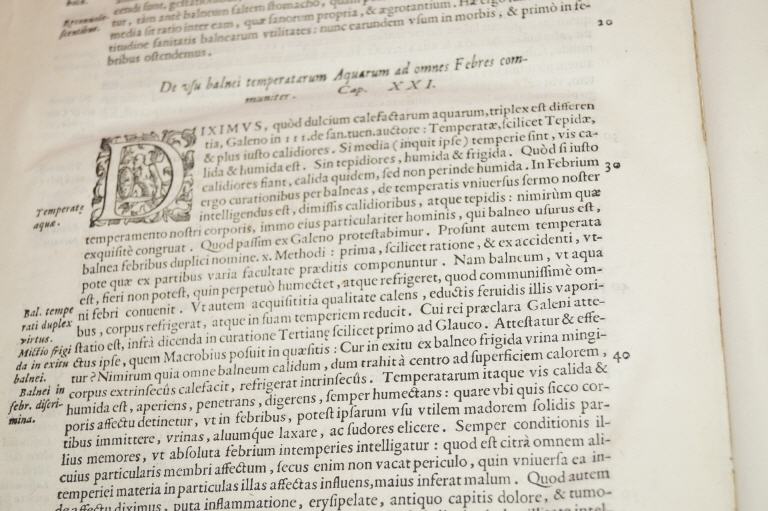 cendi sunt, gestationes
tur, tàm antè balneum saltem stomacho, quàm
Reconualescentibus.
media sit ratio inter eam, quæ sanorum propria, & ægrotantium. Hæ ergo
titudine sanitatis balnearum vtilitates: nunc earundem vsum in morbis, & primò in fe-
20
bribus ostendemus.
De vsu balnei temperatarum Aquarum ad omnes Febres com-
muniter. Cap. XXI.
DIXIMVS, quòd dulcium calefactarum aquarum, triplex est differen
tia, Galeno in 111. de san. tuen. auctore: Temperatæ, scilicet Tepidæ,
& plus iusto calidiores. Si media (inquit ipse) temperie sint, vis ca-
lida & humida est. Sin tepidiores, humida & frigida. Quòd si iusto
calidiores fiant, calida quidem, sed non perinde humida. In Febrium
30
ergo curationibus per balneas, de temperatis vniuersus sermo noster
Temperatę
aquæ.
intelligendus est, dimissis calidioribus, atque tepidis: nimirùm quæ
temperamento nostri corporis, immo eius particulariter hominis, qui balneo vsurus est,
exquisitè congruat. Quod passim ex Galeno protestabimur. Prosunt autem temperata
balnea febribus duplici nomine. x. Methodi: prima, scilicet ratione, & ex accidenti, vt-
pote quæ ex partibus varia facultate præditis componuntur. Nam balneum, vt aqua
est, fieri non potest, quin perpetuò humectet, atque refrigeret, quod communissimè om-
Bal. tempe
rati duplex
virtus.
ni febri conuenit. Vt autem acquisititia qualitate calens, eductis feruidis illis vapori-
bus, corpus refrigerat, atque in suam temperiem reducit. Cui rei præclara Galeni atte-
statio est, infrà dicenda in curatione Tertianę scilicet primo ad Glauco. Attestatur & effe-
Mictio frigi
da in exitu
balnei.
ctus ipse, quem Macrobius posuit in quæsitis: Cur in exitu ex balneo frigida vrina mingi-
tur? Nimirum quia omne balneum calidum, dum trahit à centro ad superficiem calorem,
40
Balnei in
febr. discri-
mina.
corpus extrinsecùs calefacit, refrigerat intrinsecùs. Temperatarum itaque vis calida &
humida est, aperiens, penetrans, digerens, semper humectans: quare vbi quis sicco cor-
poris affectu detinetur, vt in febribus, potest ipsarum vsu vtilem madorem solidis par-
tibus immittere, vrinas, aluumque laxare, ac sudores elicere. Semper conditionis il-
lius memores, vt absoluta febrium intemperies intelligatur: quod est citrà omnem ali-
cuius particularis membri affectum, secus enim non vacat periculo, quin vniuersa ea in-
temperiei materia in particulas illas affectas influens, maius inferat malum. Quod autem
de affectu diximus, puta inflammatione, erysipelate, antiquo capitis dolore, & tumo-